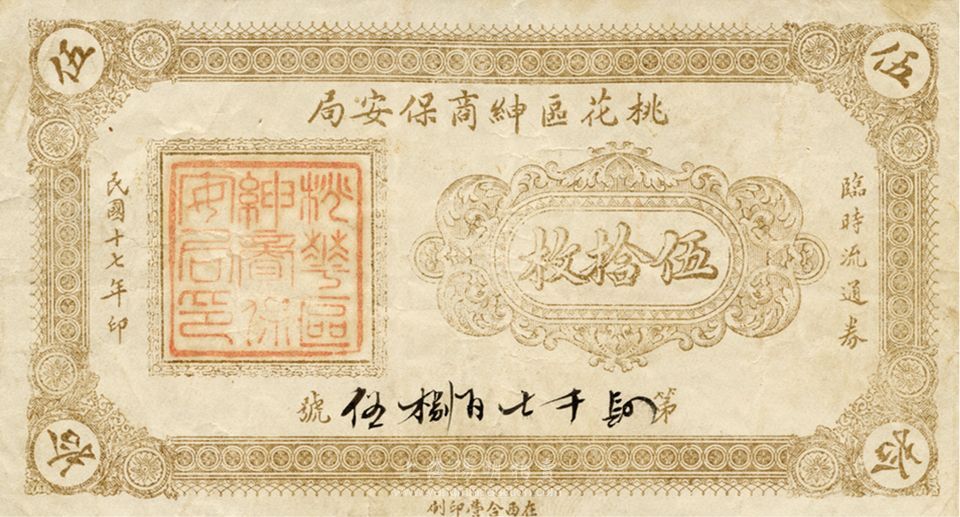 桃花區紳商保安局
臨時流通券
伍拾枚
民國十七年印
桃華區
紳商保
安局印
第 七千 百捌伍 號
伍
伍
拾
拾